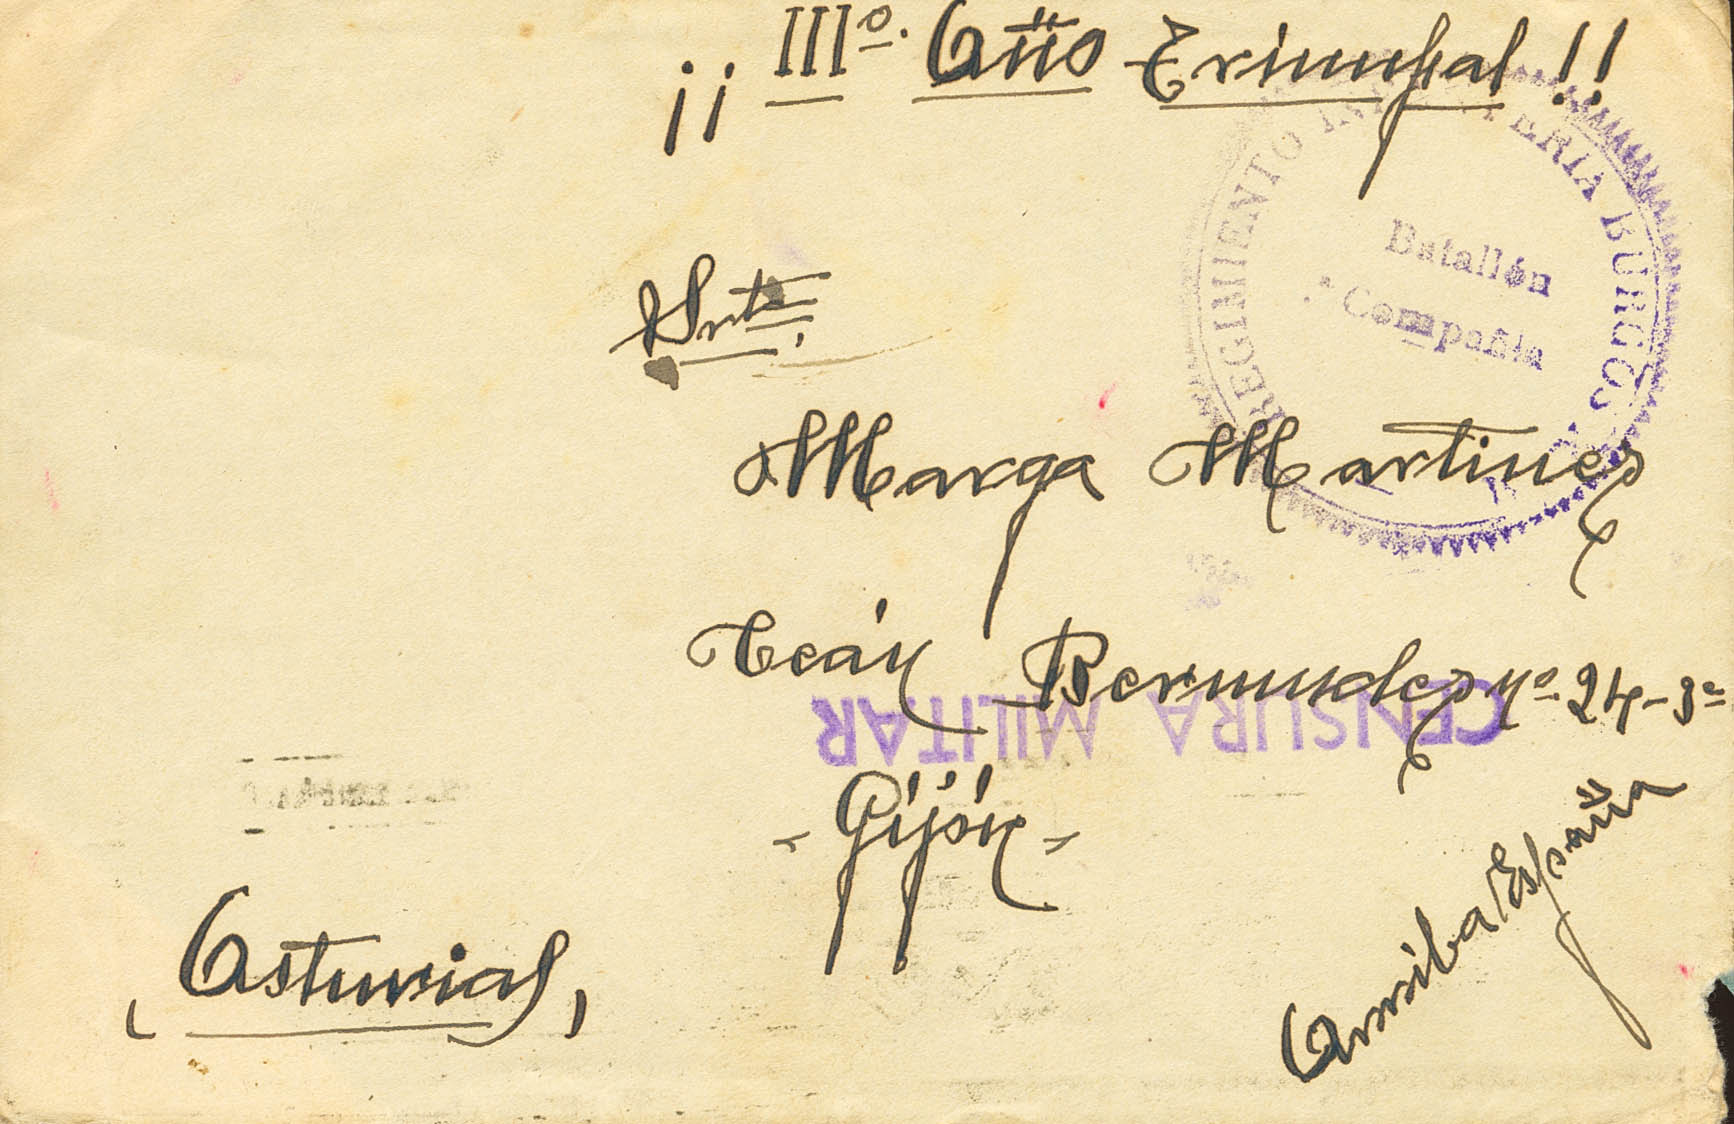 ¡¡ IIIº. Año Triunfal !!
REGIMIENTO INFANTERIA BURGOS
Batallón
Compañia
Srta.
Marga Martinez
Ceán Bermudez nº. 24-3º
CENSURA MILITAR
- Gijón -
(Asturias)
Arriba España